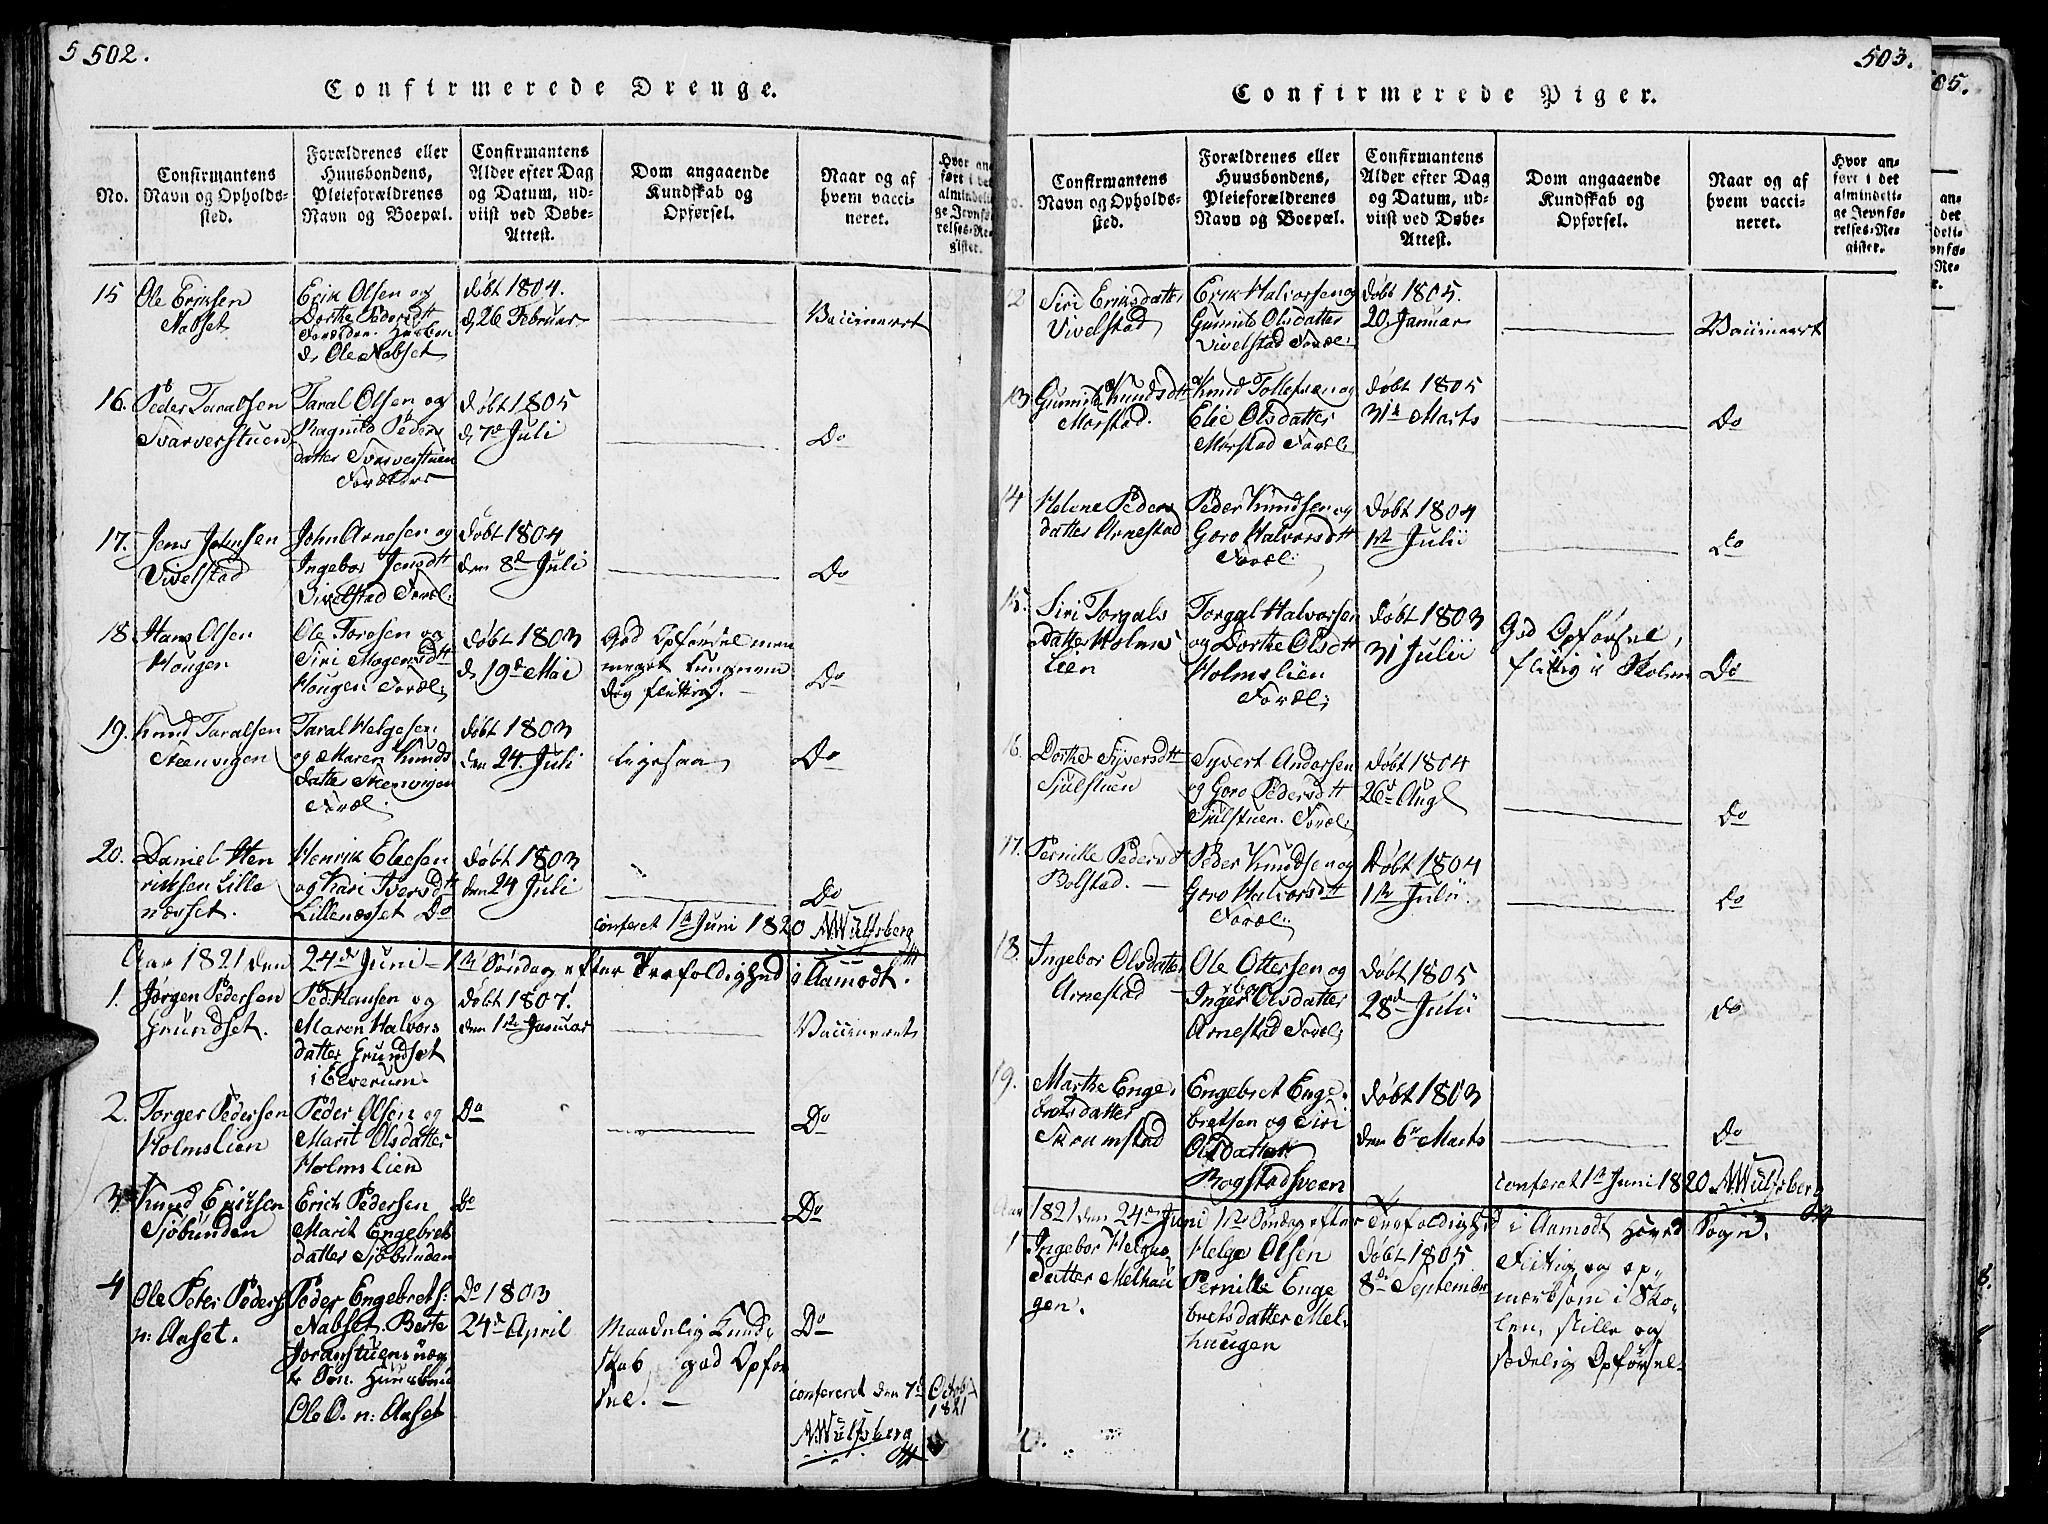 5 502.
Confirmerede Drenge.
No.
Confirmantens
Navn og Opholds-
sted.
Forældrenes eller
Huusbondens,
Pleieforældrenes
Navn og Boepæl.
Confirmantens
Alder efter Dag
og Datum, ud-
viist ved Døbe-
Attest.
Dom angaaende
Kundskab og
Opførsel.
Naar og af
hvem vacci-
neret.
Hvor an-
ført i det
almindeli-
ge Jevnfø-
relses-Re-
gister.
15 Ole Eriksen
Nabset
Erik Olsen og
Dorthe Pedersdtt
Forældre. Huusbon
d. Ole Nabset
døbt 1804.
d. 26 Februar
Vaccineert
16. Peder Taralsen
Svarverstuen
Taral Olsen og
Ragnild Peders
datter Svarverstuen
Forældre
døbt 1805
d. 7de Juli
Do
17. Jens Johnsen
Vivelstad
John Arnesen og
Ingebor Jensdtt
Vivelstad Foræl:
døbt 1804
den 8de Juli
Do
18. Hans Olsen
Hougen
Ole Torosen og
Siri Mogensdtt
Hougen Foræl:
døbt 1803
d. 19de Mai
God Opførsel men
meget tungnem
dog flittig.
Do
19. Knud Taralsen
Steenvigen
Taral Helgesen
og Maren Knuds
datter Steenvigen
Foræl:
døbt 1803
den 24. Juli
Ligesaa
Do
20. Daniel Hen
riksen Lille
næsset.
Henrik Eliesen
og Kari Iversdtt
Lillenæsset Do
døbt 1803
den 24 Juli
Do
conferet 1te Juni 1820 A. Wulfsberg
Aar 1821 den 24de Juni - 1te Søndag efter Trefoldighed i Aamodt.
1. Jørgen Pedersen
Grundset.
Ped: Hansen og
Maren Halvors
datter Grundset
i Elverum.
døbt 1807.
den 1ste Januar
Vaccineret
2. Torger Pedersen
Holmslien
Peder Olsen og
Marit Olsdatter
Holmslien
Do
Do
3. Knud Eriksen
Sjøbunden
Erich Pedersen
Marit Engebrets
datter Sjøbunden
Do
Do
4 Ole Peter Peders
n: Aaset.
Peder Engebrets:
Nabset. Berte
Joranstuens uæg
te Søn. Huusbond
Ole O. n: Aaset
Do 1803
24de April
Maadelig Kund
skab god Opfør
sel.
Do
confereret den 7de Octobr
1821
A. Wulfsberg
503.
Confirmerede Piger.
Confirmantens
Navn og Opholds-
sted.
Forældrenes eller
Huusbondens,
Pleieforældrenes
Navn og Boepæl.
Confirmantens
Alder efter Dag
og Datum, ud-
viist ved Døbe-
Attest.
Dom angaaende
Kundskab og
Opførsel.
Naar og af
hvem vacci-
neret.
Hvor an-
ført i det
almindeli-
ge Jevnfø-
relses-Re-
gister.
12 Siri Eriksdatter
Vivelstad
Erik Halvorsen og
Gunnild Olsdatter
Vivelstad Foræl:
døbt 1805.
20 Januar
Vaccineert
13 Gunnild Knudsdtt
Morstad.
Knud Tollefsen og
Elie Olsdatter
Morstad Foræl:
døbt 1805
31te Marts
Do
14 Helene Peders
datter Arnestad
Peder Knudsen og
Goro Halvorsdtt
Foræl:
døbt 1804
1ste Julii
Do
15. Siri Torgals
datter Holms
lien
Torgal Halvorsen
og Dorthe Olsdtt
Holmslien
Foræl:
døbt 1803
31 Julii
God Opførsel,
flittig i Skolen
Do
16. Dorthe Syversdtt
Sjulstuen
Syvert Andersen
og Goro Pedersdtt
Sjulstuen. Foræl:
døbt 1804
26de Aug
Do
17. Pernille Pedersdtt
Bolstad.
Peder Knudsen og
Goro Halvorsdtt
Foræl:
Døbt 1804
1ste Julii
Do
18. Ingebor Olsdatter
Arnestad
Ole Ottersen og
Inger Olsdatter
Arnestad Foræl:
døbt 1805
28de Julii
do
19. Marthe Enge
bretsdatter
Skramstad
Engebret Enge
bretsen og Siri
Olsdatter
Rogstadsveen
døbt 1803
den 6te Marts
Do
conferet 1te Juni 1820 A. Wulfsberg
Aar 1821 den 24de Juni 1ste Søndag efter Trefoldighed i Aamodt Hoved Sogn.
1 Ingebor Helges
datter Melhau
gen.
Helge Olsen
Pernille Enge
bretsdatter Mel
haugen
døbt 1805
8de September
Flittig og op
mærksom i Sko
len, stille og
sædelig Opførsel
Do
505.
an-
det
deli-
vnfø-
-Re-
r.
8.